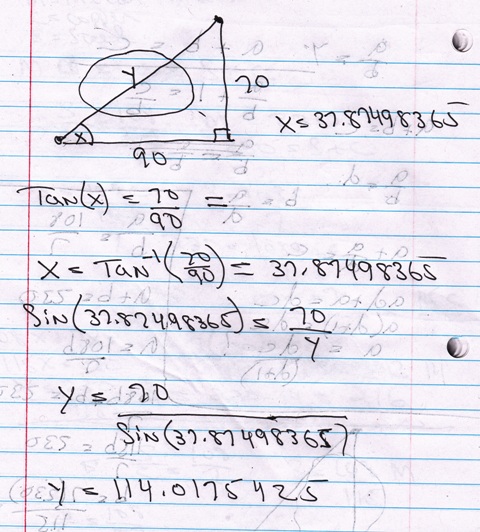 y
70
x
90
X = 37.87498365
Tan(x) = 70/90 =
X = Tan⁻¹(70/90) = 37.87498365
Sin(37.87498365) = 70/y
y = 70/Sin(37.87498365)
y = 114.0175425